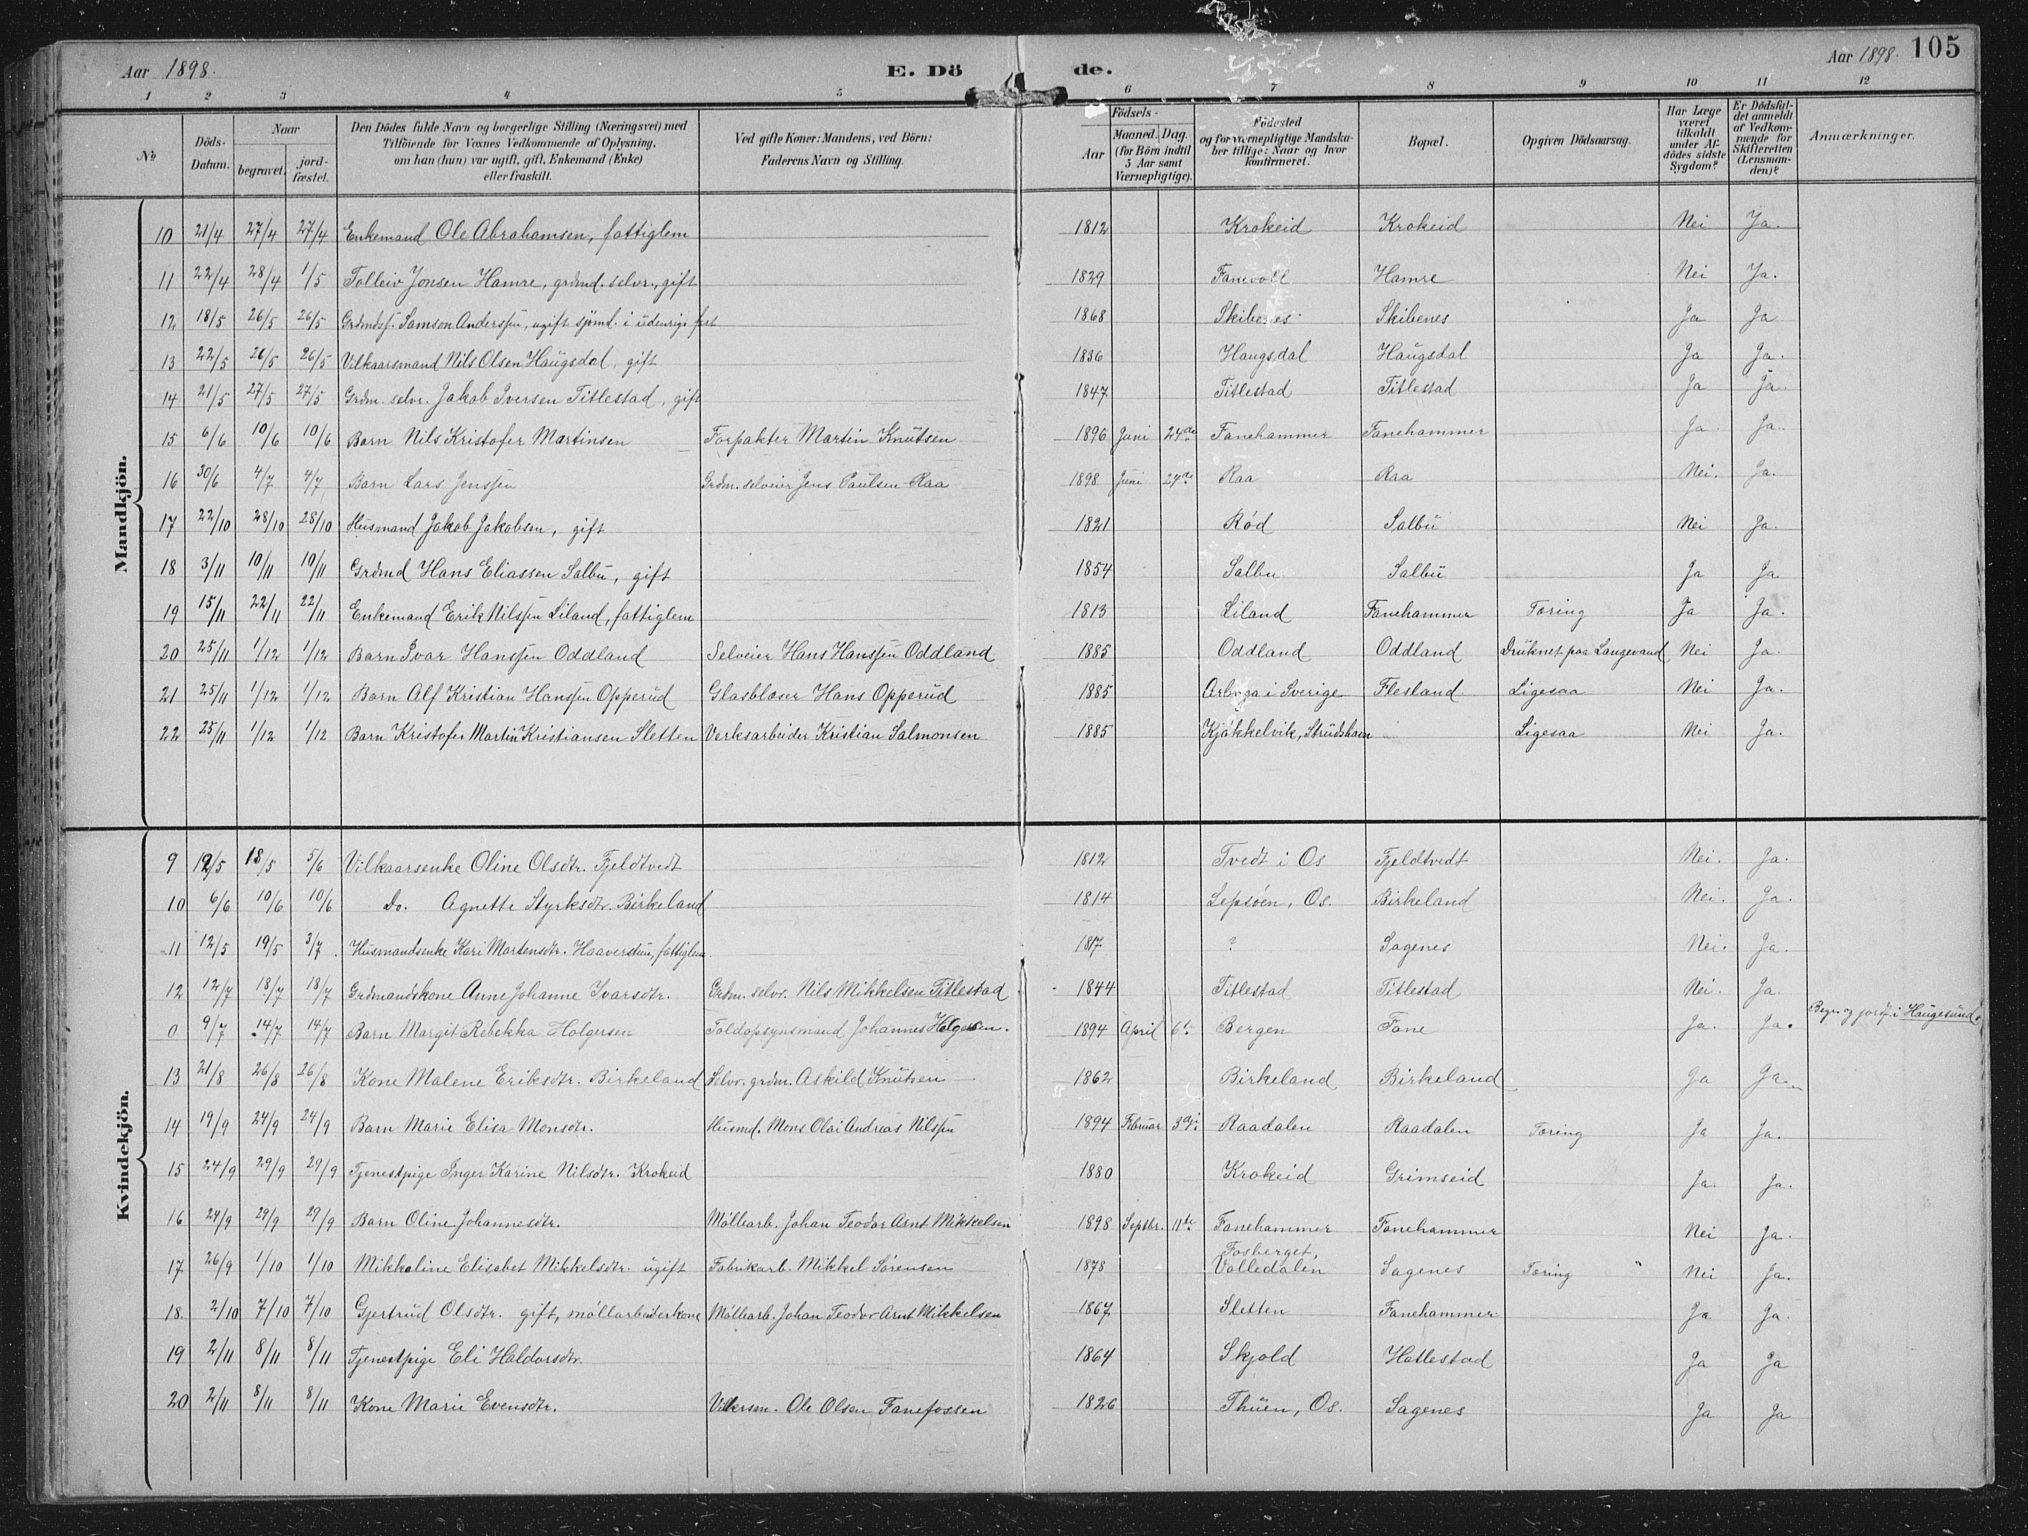 Aar 1898. E. Dö de. Aar 1898. 105
1 2 3 4 5 6 7 8 9 10 11 12
No Döds-Datum. Naar begravet. jord-fæstet. Den Dödes fulde Navn og borgerlige Stilling (Næringsvei) med Tilföiende for Voxnes Vedkommende af Oplysning, om han (hun) var ugift, gift, Enkemand (Enke) eller fraskilt. Ved gifte Koner: Mandens, ved Börn: Faderens Navn og Stilling. Födsels- Aar Maaned. Dag. (for Börn indtil 5 Aar samt Værnepligtige). Födested og for værnepligtige Mandskaber tillige: Naar og hvor konfirmeret. Bopæl. Opgiven Dödsaarsag. Har Læge været tilkaldt under Afdödes sidste Sygdom? Er Dödsfaldet anmeldt af Vedkommende for Skifteretten (Lensmanden)? Anmærkninger.
Mandkjön.
10 21/4 27/4 27/4 Enkemand Ole Abrahamsen, fattiglem 1812 Krokeid Krokeid Nei Ja.
11 22/4 28/4 1/5 Tolleiv Jonsen Hamre, grdmd. selvr., gift 1829 Fanevoll Hamre Nei Ja.
12 18/5 26/5 26/5 Grdmdsf. Samson Anderssen, ugift sjömd. i udenrigs fart 1868 Skibenes Skibenes Ja Ja
13 22/5 26/5 26/5 Vilkaarsmand Nils Olsen Haugsdal, gift 1836 Haugsdal Haugsdal Ja Ja.
14 21/5 27/5 27/5 Grdm. selvr. Jakob Iversen Titlestad, gift 1847 Titlestad Titlestad Ja Ja.
15 6/6 10/6 10/6 Barn Nils Kristofer Martinsen Forpakter Martin Knutsen 1896 Juni 24de Fanehammer Fanehammer Ja. Ja.
16 30/6 4/7 4/7 Barn Lars Jenssen Grdm. selveier Jens Paulsen Raa 1898 Juni 29de Raa Raa Nei. Ja.
17 22/10 28/10 28/10 Husmand Jakob Jakobsen, gift 1821 Rød Salbu Nei Ja.
18 3/11 10/11 10/11 Grdmd Hans Eliassen Salbu, gift 1854 Salbu Salbu Ja Ja
19 15/11 22/11 22/11 Enkemand Erik Nilssen Liland, fattiglem 1813 Liland Fanehammer Tæring Ja Ja.
20 25/11 1/12 1/12 Barn Ivar Hanssen Oddland Selveier Hans Hanssen Oddland 1885 Oddland Oddland Druknet paa Langevand Nei Ja.
21 25/11 1/12 1/12 Barn Alf Kristian Hanssen Opperud Glasblæser Hans Opperud 1885 Arboga i Sverige Flesland Ligesaa Nei Ja.
22 25/11 1/12 1/12 Barn Kristofer Martin Kristiansen Sletten Verksarbeider Kristian Salmonsen 1885 Kjøkkelvik, Strudshavn Ligesaa Nei Ja.
Kvindekjön.
9 12/5 18/5 5/6 Vilkaarsenke Oline Olsdtr. Fjeldtvedt 1812 Tvedt i Os Fjeldtvedt Nei. Ja.
10 6/6 10/6 10/6 Do. Agnette Styrksdtr. Birkeland 1814 Lepsöen, Os. Birkeland Nei. Ja.
11 12/5 19/5 3/7. Husmandsenke Kari Martensdtr. Haaverstun, fattiglem. 1817 ? Sagenes Nei. Ja.
12 12/7 18/7 18/7 Grdmandskone Anne Johanne Ivarsdtr. Grdm. selvr. Nils Mikkelsen Titlestad 1844 Titlestad Titlestad Nei. Ja.
0 9/7 14/7 14/7 Barn Margit Rebekka Holgersen Toldopsynsmand Johannes Holgersen. 1894 April 6te Bergen Fane Ja. Ja. Begr. og jordf. i Haugesund.
13 21/8 26/8 26/8 Kone Malene Eriksdtr. Birkeland Selvr. grdm. Askild Knutsen 1862 Birkeland Birkeland Ja Ja.
14 19/9 24/9 24/9 Barn Marie Elisa Monsdtr. Husmd. Mons Olai Andreas Nilssen 1894 Februar 3die Raadalen Raadalen Tæring Ja Ja.
15 24/9 29/9 29/9 Tjenestpige Inger Karine Nilsdtr. Krokeid 1880 Krokeid Grimseid Ja. Ja.
16 24/9 29/9 29/9 Barn Oline Johannesdtr. Møllearb. Johan Teodor Arnt Mikkelsen 1898 Septbr. 11te Fanehammer Fanehammer Nei Ja.
17 26/9 1/10 1/10 Mikkaline Elisabet Mikkelsdtr. ugift Fabrikarb. Mikkel Sörensen 1878 Fosberget, Volledalen Sagenes Tæring Nei Ja.
18. 2/10 7/10 7/10 Gjertrud Olsdtr. gift, møllarbeiderkone Møllearb. Johan Teodor Arnt Mikkelsen 1867 Sletten Fanehammer Ja Ja.
19 2/11 8/11 8/11 Tjenestpige Eli Haldorsdtr. 1864 Skjold Hatlestad Ja Ja
20 2/11 8/11 8/11 Kone Marie Evensdtr. Ole Olsen Fanefossen 1826 Thuen, Os. Sagenes Ja Ja